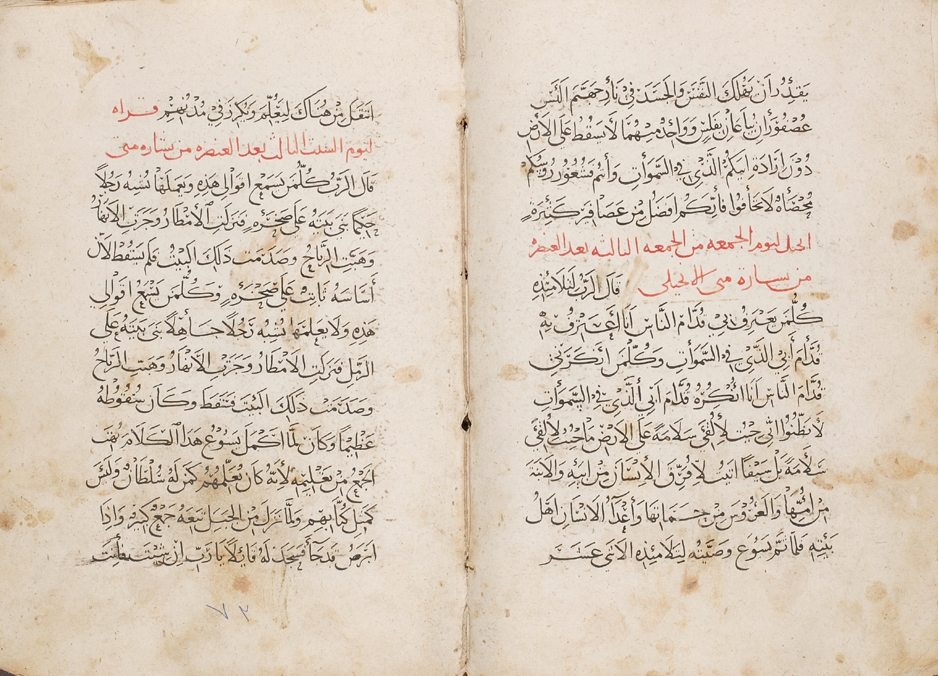 يقدر أن يهلك النفس والجسد في نار جهنم اليس
عصفوران يباعان بفلس وواحد منهما لا يسقط على الأرض
دون إرادة ابيكم الذي في السموات وأنتم فشعور روسكم
محصاه لا تخافوا فأنكم أفضل من عصافير كثيرة
انجيل ليوم الجمعه من الجمعه الثالثه بعد العنصره
من بشارة متى الانجيلي قال الرب لتلاميذه
كل من يعترف بي قدام الناس أنا أعترف به
قدام أبي الذي في السموات وكل من انكرني
قدام الناس أنا انكره قدام أبي الذي في السموات
لا تظنوا اني جيت لألقي سلامة على الارض ما جيت لألقي
سلامة بل سيفا اتيت لافرق الإنسان من ابيه والابنة
من أمها والعروس من حماتها وأعداء الانسان اهل
بيته فلما تم يسوع وصيته لتلاميذه الاثني عشر
انتقل من هناك ليعلم ويكرز في مدينهم قراه
ليوم السبت الثالث بعد العنصره من بشاره متى
قال الرب كل من يسمع اقوالي هذه ويعملها يشبه رجلا
حكيما بنى بيته على صخره فنزلت الأمطار وجرت الأنهار
وهبت الرياح وصدمت ذلك البيت فلم يسقط لأن
أساسه ثابت على صخره وكل من يسمع اقوالي
هذه ولا يعملها يشبه رجلا جاهلا بنى بيته على
الرمل فنزلت الامطار وجرت الانهار وهبت الرياح
وصدمت ذلك البيت فسقط وكان سقوطه
عظيما وكان لما اكمل يسوع هذا الكلام بهت
الجمع من تعليمه لأنه كان يعلمهم كمن له سلطان وليس
كمثل كتابهم ولما نزل من الجبل تبعه جمع كبير واذا
ابرص قد جا فسجد له قايلا يا رب ان شيت
٧٢